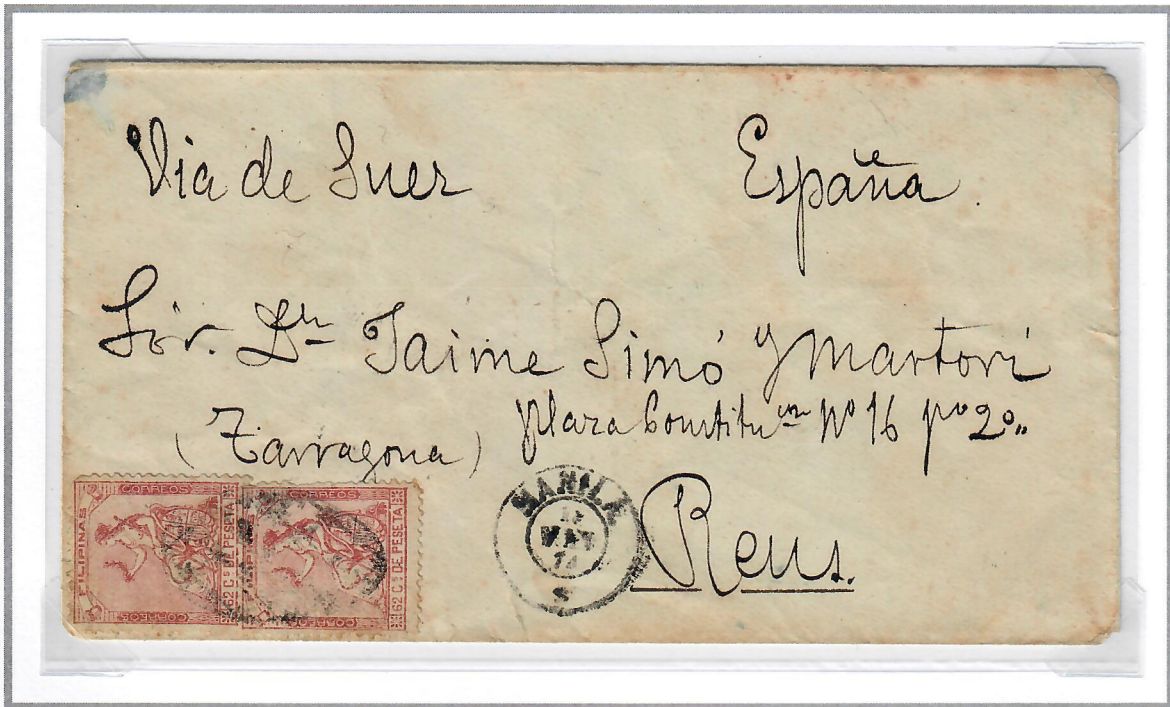 Via de Suez
España
Sor. Dn Jaime Simó y Martori
plaza Constitucn Nº 16 pº 2º
(Tarragona)
Reus.
MANILA
74
CORREOS
FILIPINAS
62 Cs DE PESETA
CORREOS
CORREOS
62 Cs DE PESETA
CORREOS